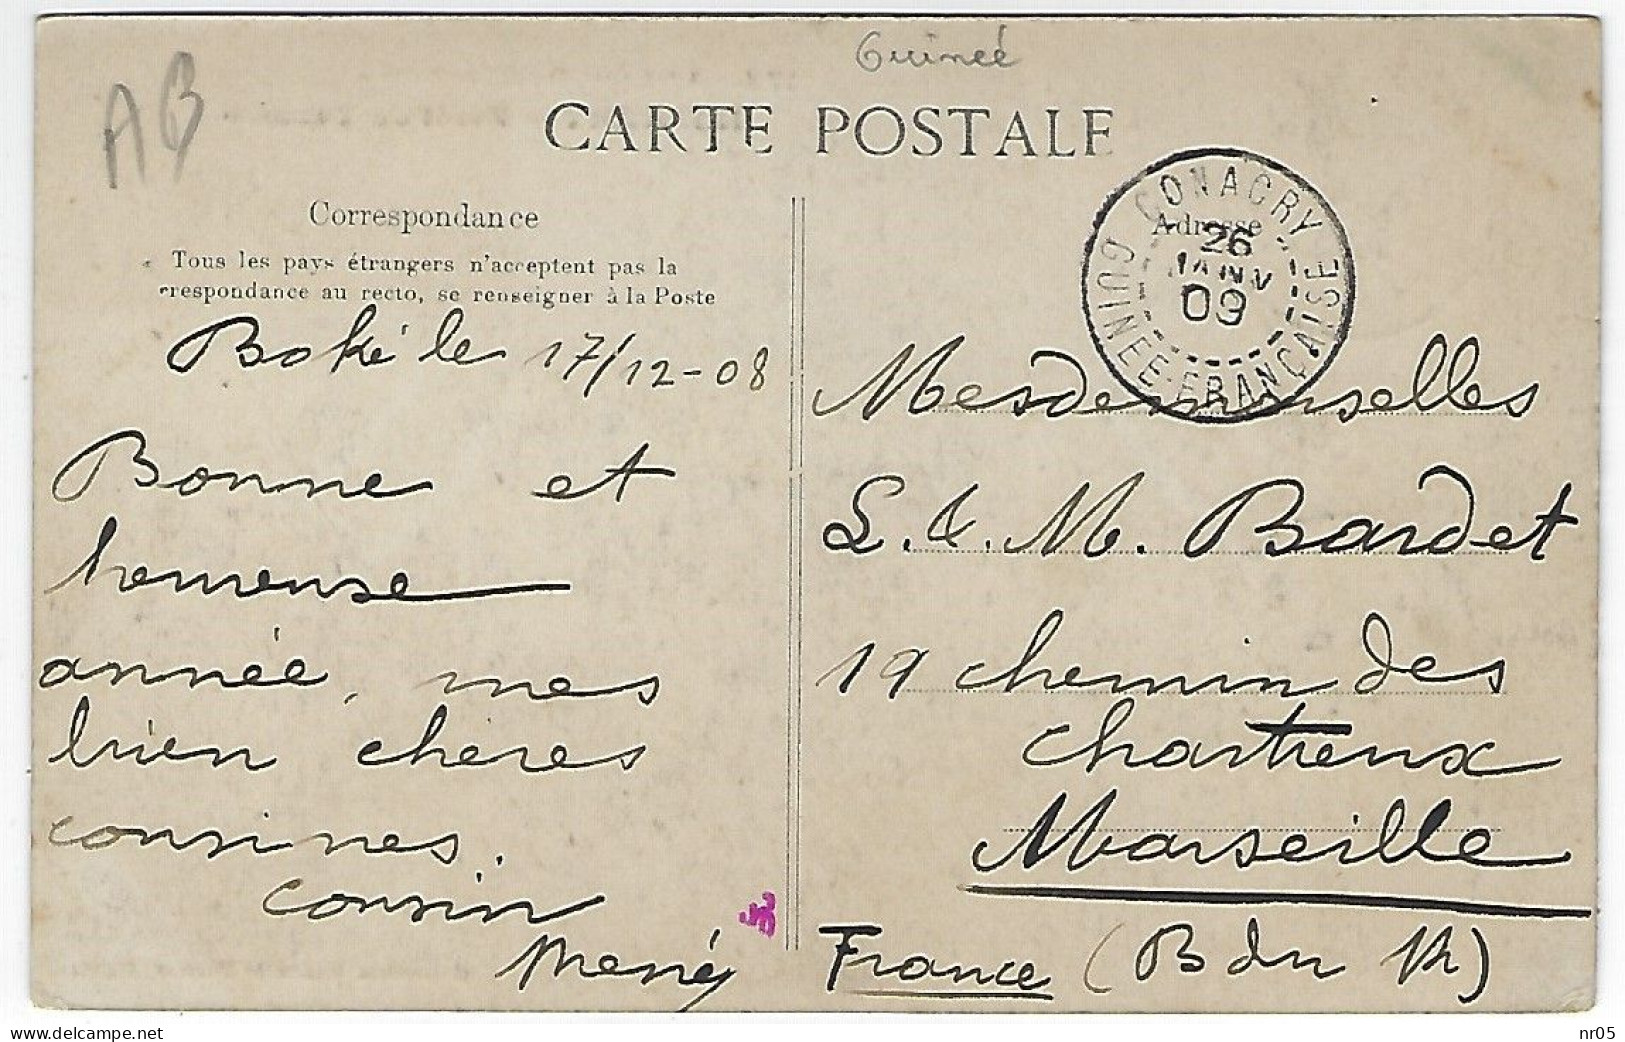 Guineé
AB
CARTE POSTALE
Correspondance
Tous les pays étrangers n'acceptent pas la
rrespondance au recto, se renseigner à la Poste
Adresse
CONACRY
26
JANV
09
GUINEE-FRANÇAISE
Boké le 17/12-08
Bonne et
heureuse
année, mes
bien chères
cousines.
cousin
Mesdemoiselles
L. & M. Bardet
19 chemin des
chartreux
Marseille
France (B du Rh)
www.delcampe.net
nr05